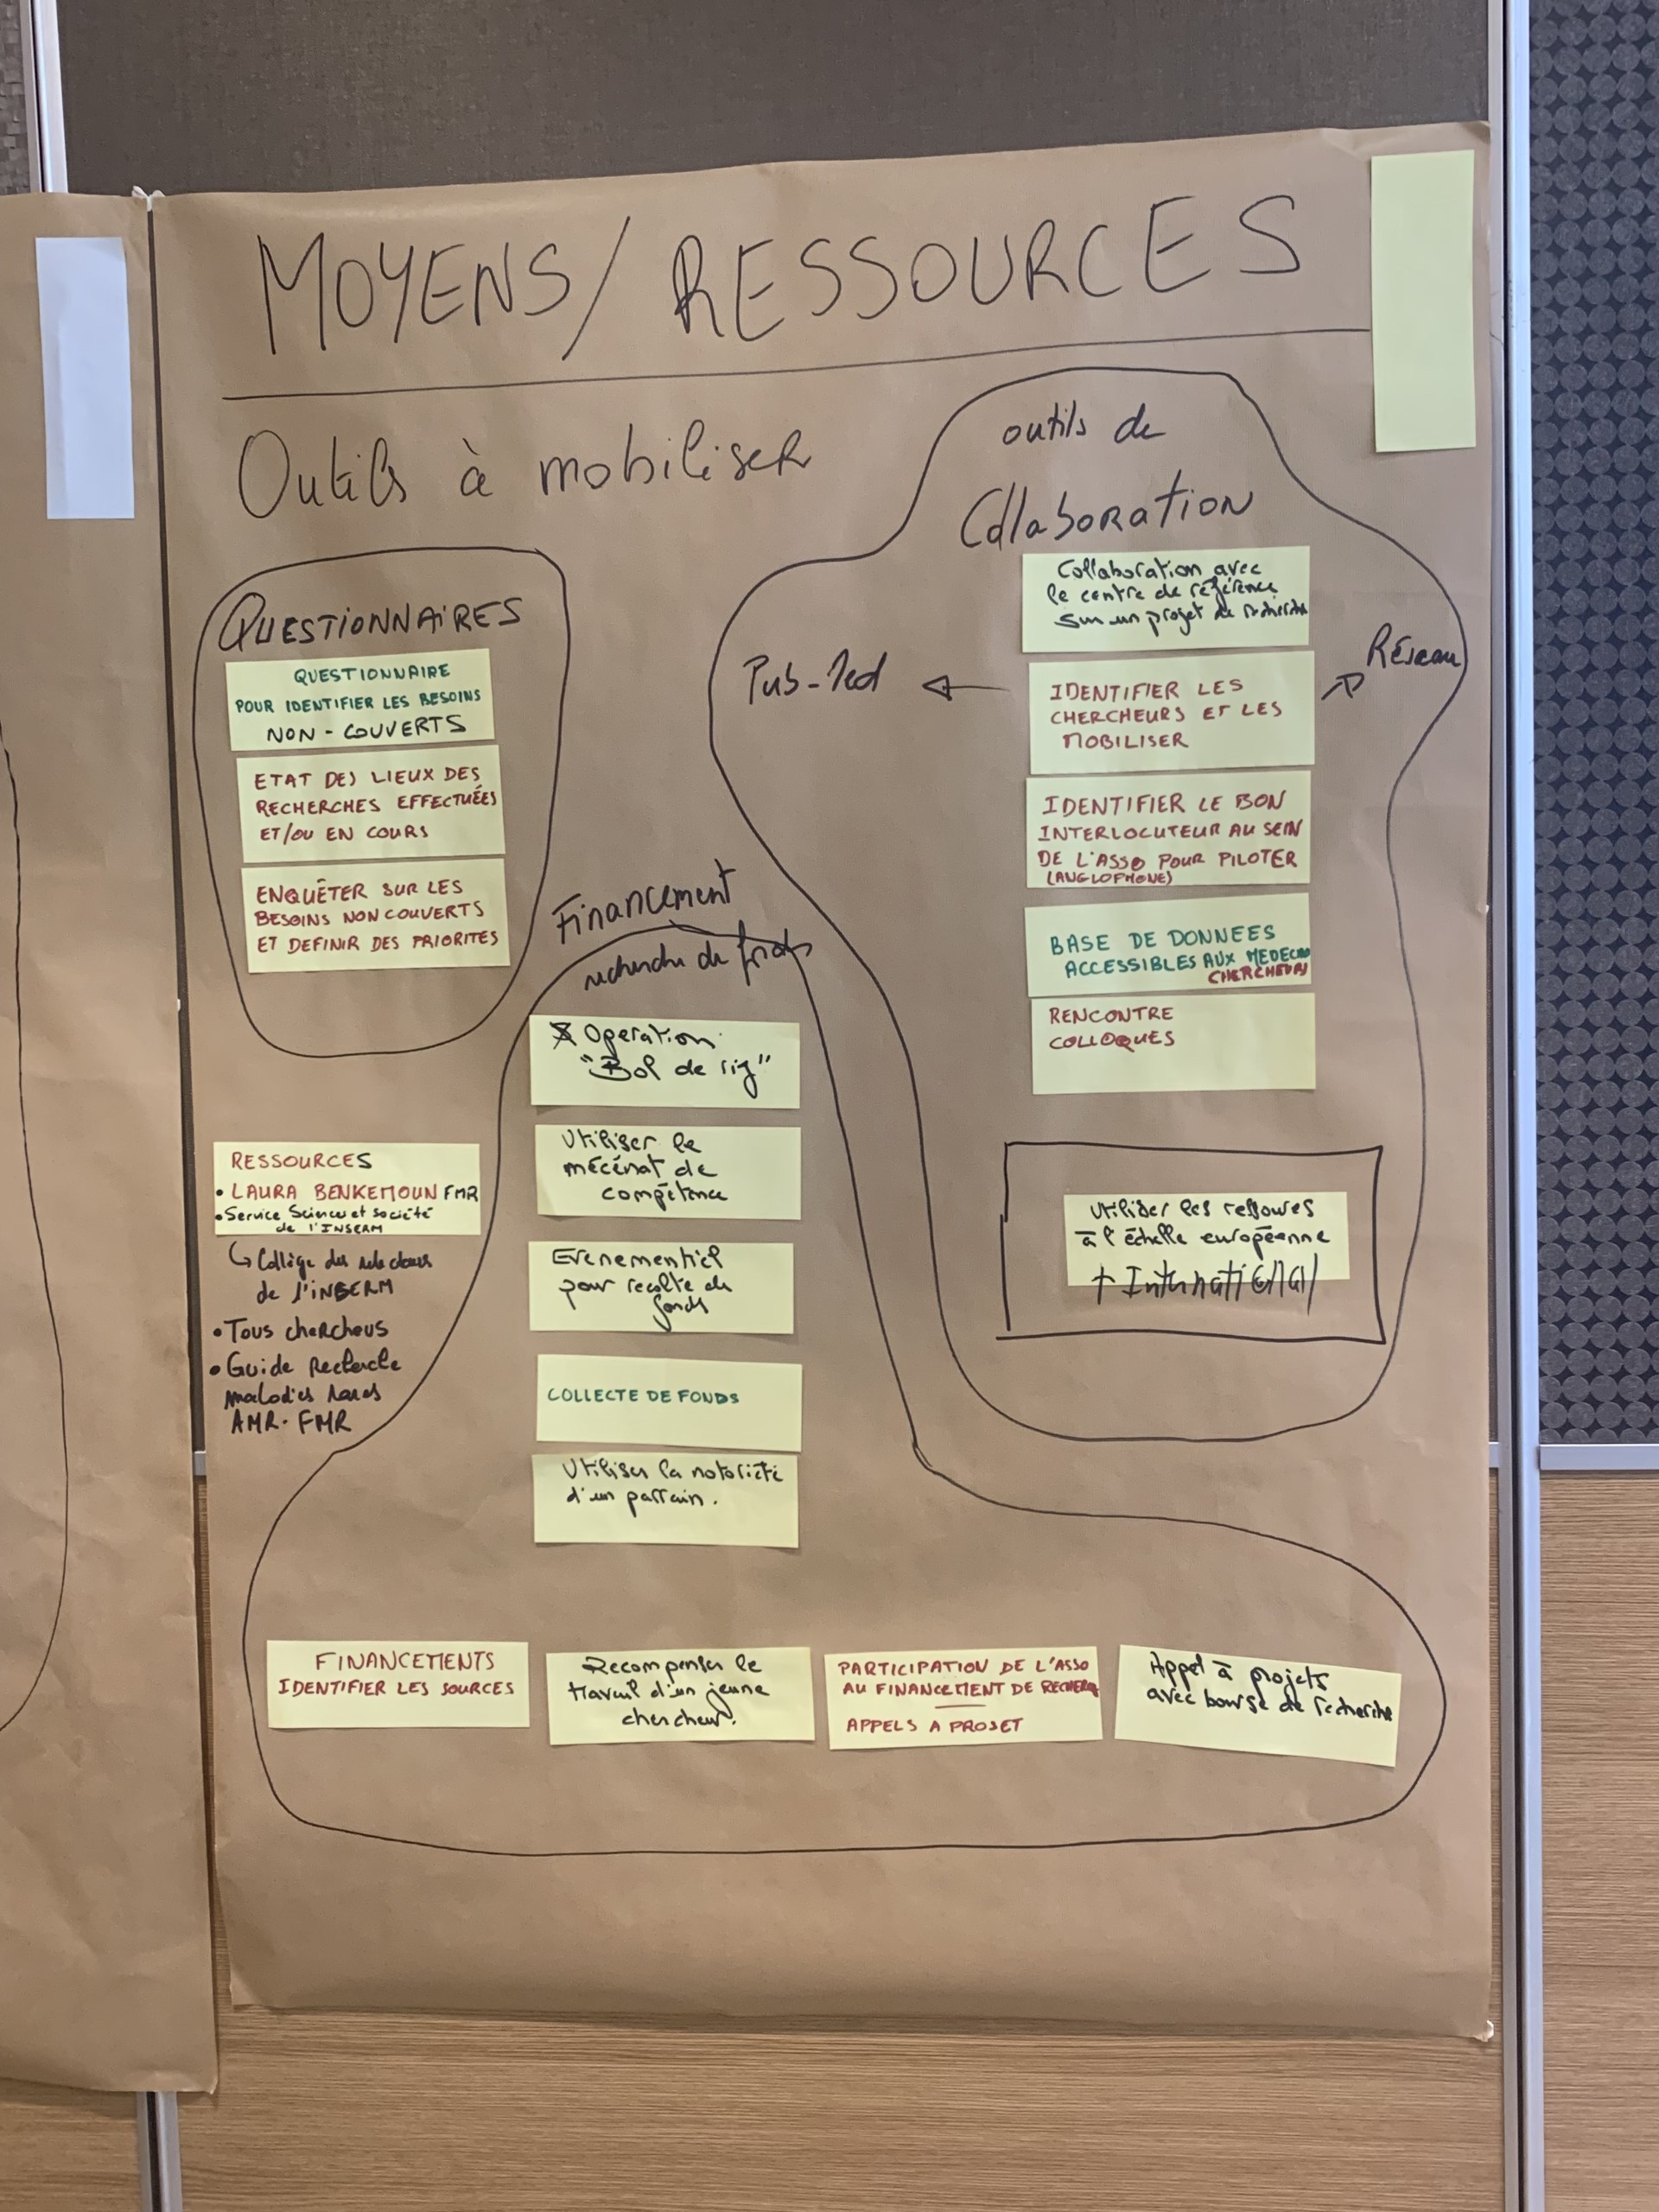 MOYENS/RESSOURCES
Outils à mobiliser
QUESTIONNAIRES
QUESTIONNAIRE
POUR IDENTIFIER LES BESOINS
NON-COUVERTS
ETAT DES LIEUX DES
RECHERCHES EFFECTUÉES
ET/OU EN COURS
ENQUÊTER SUR LES
BESOINS NON COUVERTS
ET DEFINIR DES PRIORITES
outils de
Collaboration
Collaboration avec
le centre de référence
sur un projet de recherche
Pub-Med
IDENTIFIER LES
CHERCHEURS ET LES
MOBILISER
Réseau
IDENTIFIER LE BON
INTERLOCUTEUR AU SEIN
DE L'ASSO POUR PILOTER
(ANGLOPHONE)
BASE DE DONNEES
ACCESSIBLES AUX MEDECINS
CHERCHEURS
RENCONTRE
COLLOQUES
Utiliser les ressources
à l'échelle européenne
+ International
Financement
recherche de fonds
Operation
"Bol de riz"
Utiliser le
mécénat de
compétence
Evenementiel
pour recolte de
fonds
COLLECTE DE FONDS
Utiliser la notoriété
d'un parrain.
RESSOURCES
• LAURA BENKEMOUN FMR
• Service Sciences et société
de l'INSERM
Collège des relecteurs
de l'INSERM
• Tous chercheurs
• Guide Recherche
maladies rares
AMR-FMR
FINANCEMENTS
IDENTIFIER LES SOURCES
Recompenser le
travail d'un jeune
chercheur.
PARTICIPATION DE L'ASSO
AU FINANCEMENT DE RECHERCHE
APPELS A PROJET
Appel à projets
avec bourse de recherche